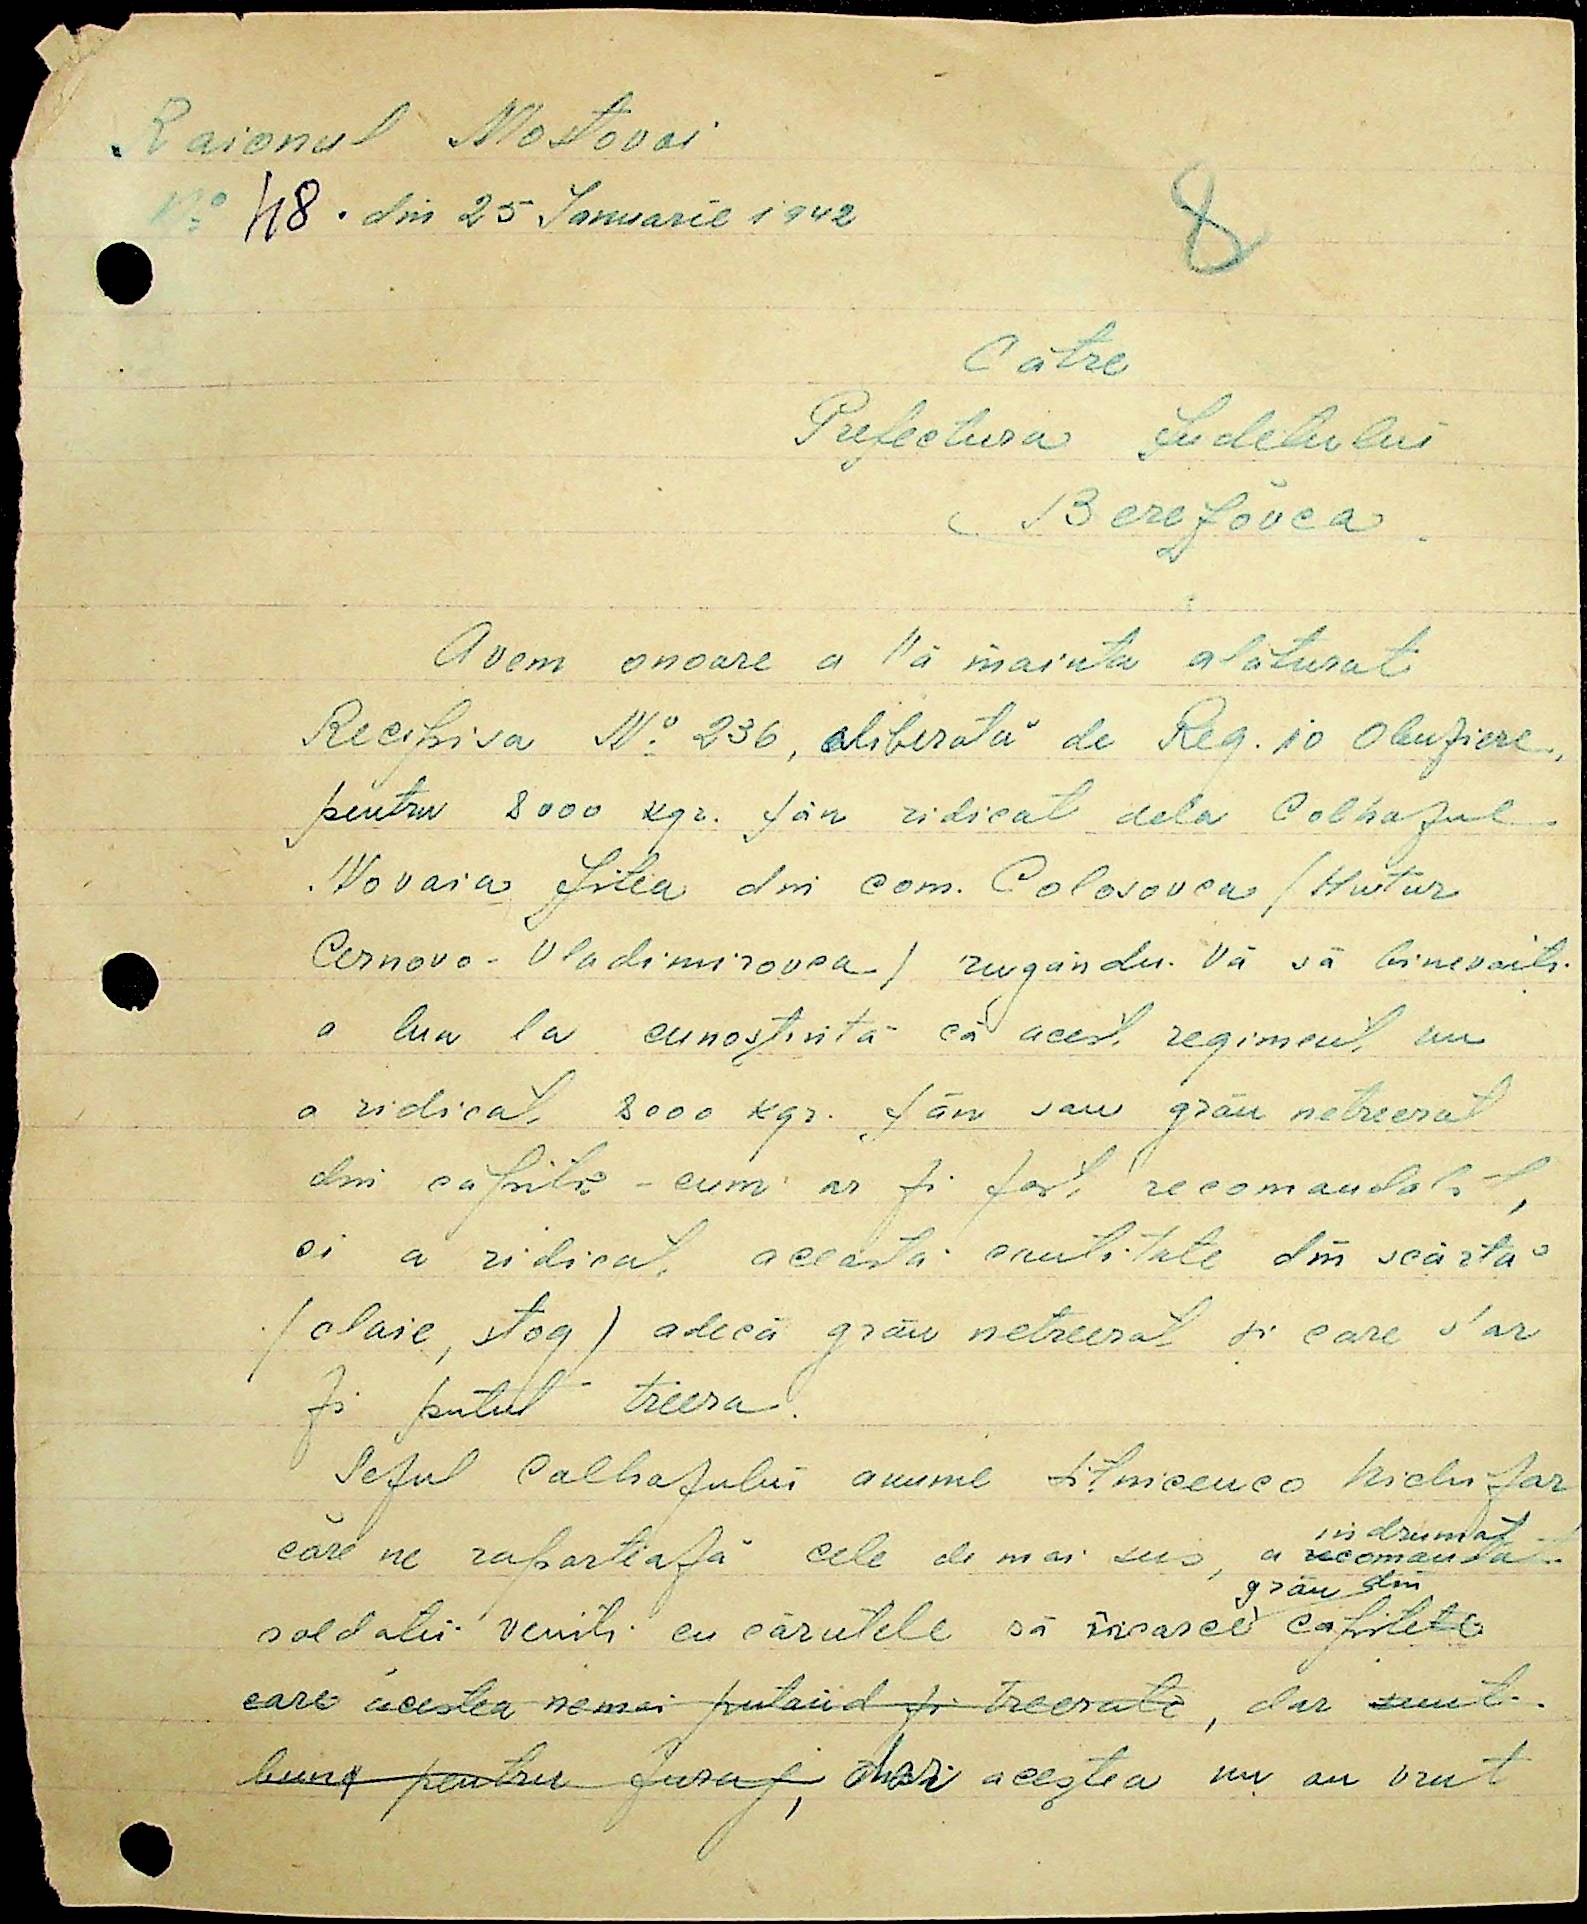 Raionul Mostovoi
Nº 48. din 25 Ianuarie 1942
8
Către
Prefectura Judetului
Berezovca
Avem onoare a Vă înainta alăturat
Recipisa Nº 236, eliberată de Reg. 10 Obuziere,
pentru 8000 kgr. fân ridicat dela Colhozul
Novaia Jitea din com. Colosovca /Hutur
Cernovo-Vladimirovca/ rugându-Vă să binevoiti
a lua la cunoștintă că acest regiment nu
a ridicat 8000 kgr. fân sau grâu netreerat
din căpite - cum ar fi fost recomandabil,
ci a ridicat această cantitate din scârtă
/claie, stog) adecă grâu netreerat și care s'ar
fi putut treera.
Seful Colhozului anume Nichifor
care ne raportează cele de mai sus, a recomandat
indrumat
soldatii veniti cu cărutele să incarce căpitele
grâu din
care acestea nemai putând fi treerate, dar sunt
bune pentru furaj, dar aceștea nu au vrut